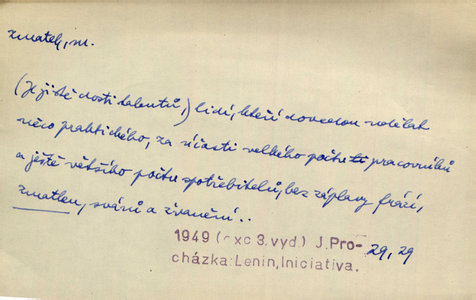 zmatek, m.
(Je jistě dosti talentů,) lidí, kteří dovedou udělat
něco praktického, za účasti velkého počtu pracovníků
a ještě většího počtu spotřebitelů, bez záplavy frází,
zmatku, svárů a žvanění..
1949 (exc 3.vyd) J.Pro-
cházka:Lenin,Iniciativa. 29,29